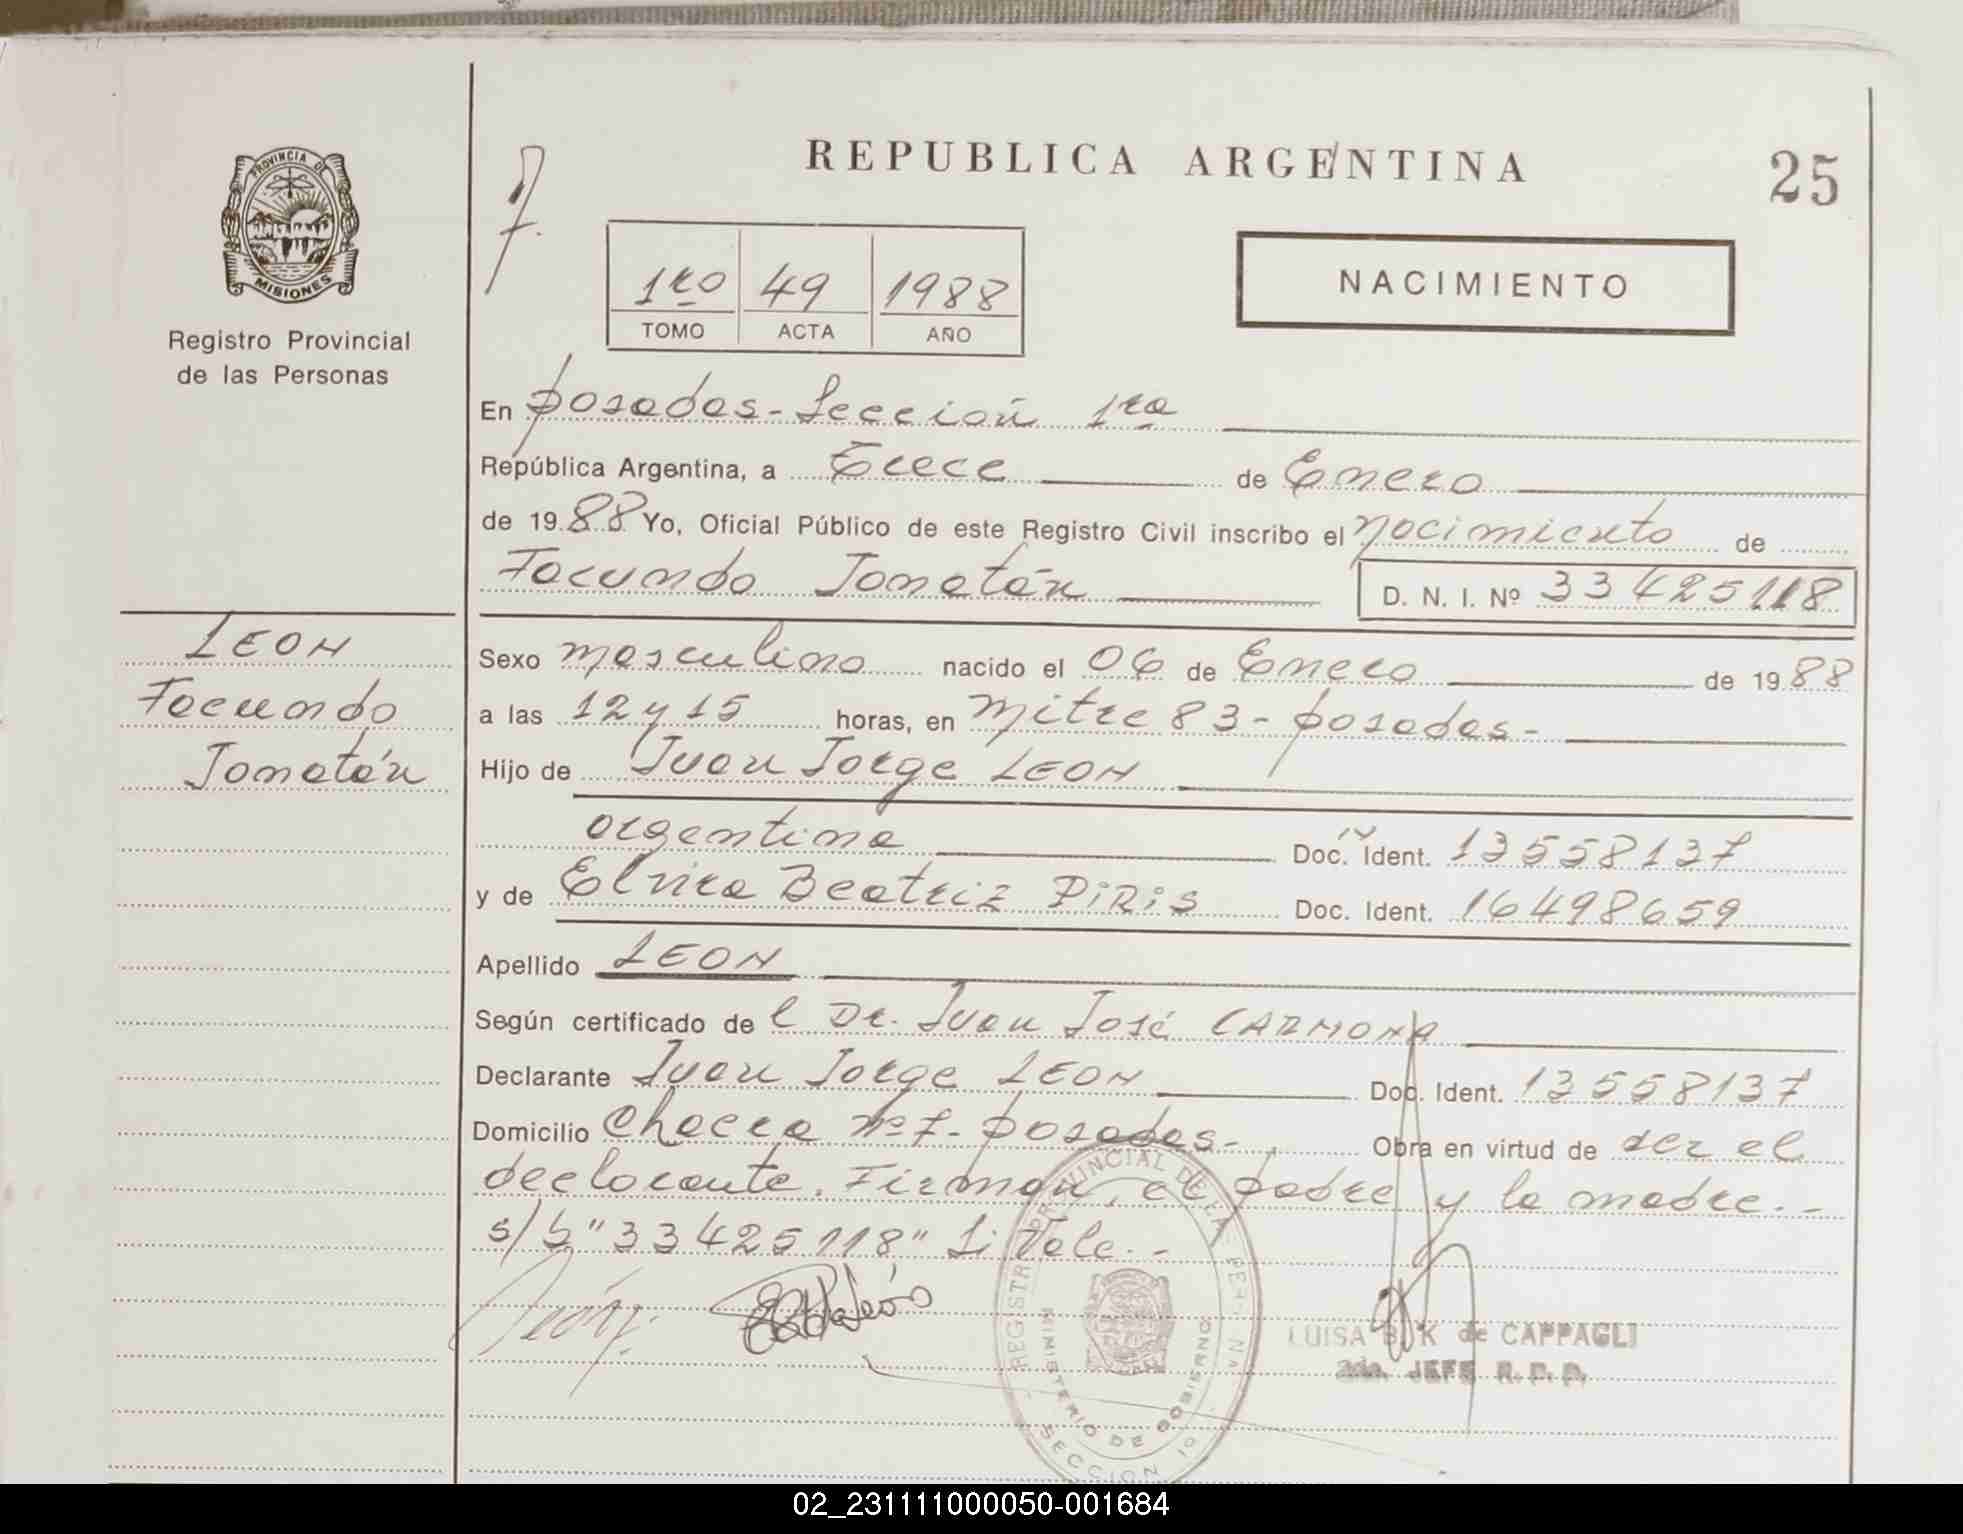 REPUBLICA ARGENTINA
25
PROVINCIA DE
MISIONES
Registro Provincial
de las Personas
1ro 49 1988
TOMO ACTA AÑO
NACIMIENTO
En Posadas - Sección 1ra
República Argentina, a Trece de Enero
de 1988 Yo, Oficial Público de este Registro Civil inscribo el Nacimiento de
Facundo Jonatán D. N. I. Nº 33425118
LEON
Facundo
Jonatán
Sexo masculino nacido el 06 de Enero de 1988
a las 12 y 15 horas, en Mitre 83 - Posadas -
Hijo de Juan Jorge LEON
argentino Doc. Ident. 13558137
y de Elvira Beatriz PIRIS Doc. Ident. 16498659
Apellido LEON
Según certificado de l Dr. Juan José CARMONA
Declarante Juan Jorge LEON Doc. Ident. 13558137
Domicilio Chacra Nº 7 - Posadas - Obra en virtud de ser el
declarante. Firman, el padre y la madre. -
s/b "33425118" Si Vale. -
REGISTRO PROVINCIAL DE LAS PERSONAS
MINISTERIO DE GOBIERNO
SECCION 1º
LUISA de CAPPAGLI
2da. JEFE R. P. P.
02_231111000050-001684